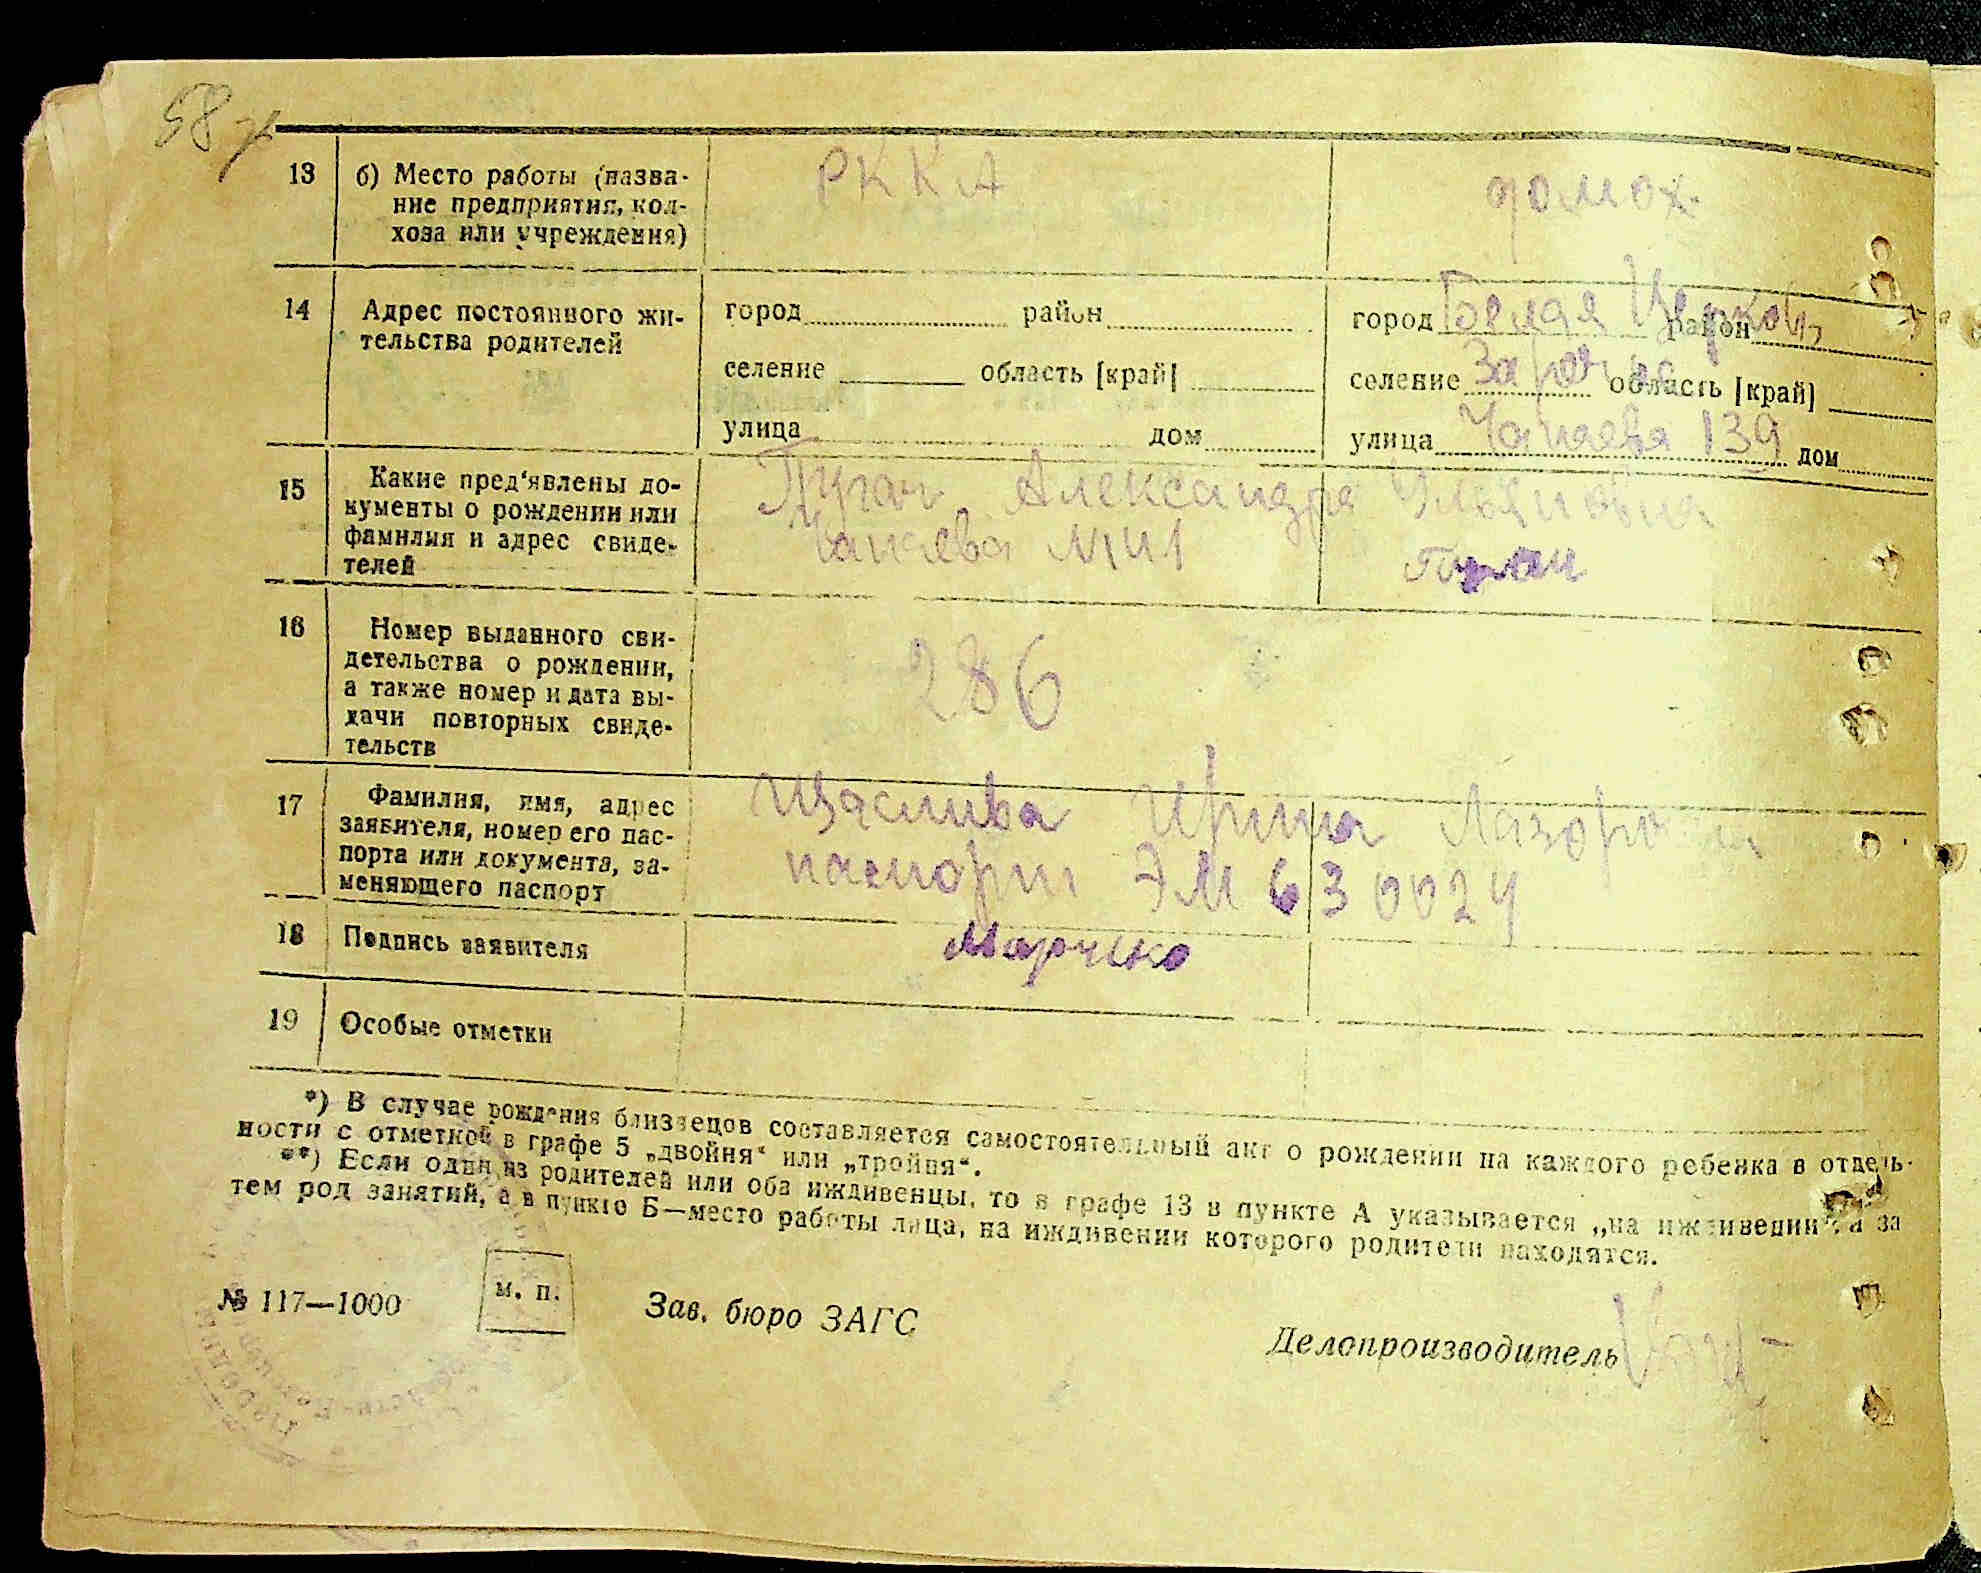 58
13 б) Место работы (назва-
ние предприятия, кол-
хоза или учреждения)
РККА
домох.
14 Адрес постоянного жи-
тельства родителей
город район
селение область [край]
улица дом
город Белая Церковь район
селение Заречье область [край]
улица Чапаева 139 дом
15 Какие пред'явлены до-
кументы о рождении или
фамилия и адрес свиде-
телей
Александра Ульяновна
Чапаева
16 Номер выданного сви-
детельства о рождении,
а также номер и дата вы-
дачи повторных свиде-
тельств
286
17 Фамилия, имя, адрес
заявителя, номер его пас-
порта или документа, за-
меняющего паспорт
Щаслива Ирина
паспорт ЭМ 630024
18 Подпись заявителя
Марченко
19 Особые отметки
*) В случае рождения близнецов составляется самостоятельный акт о рождении на каждого ребенка в отдель-
ности с отметкой в графе 5 „двойня“ или „тройня“.
**) Если один из родителей или оба иждивенцы, то в графе 13 в пункте А указывается „на иждивении“, а за
тем род занятий, а в пункте Б—место работы лица, на иждивении которого родители находятся.
№ 117—1000
м. п.
Зав. бюро ЗАГС
Делопроизводитель